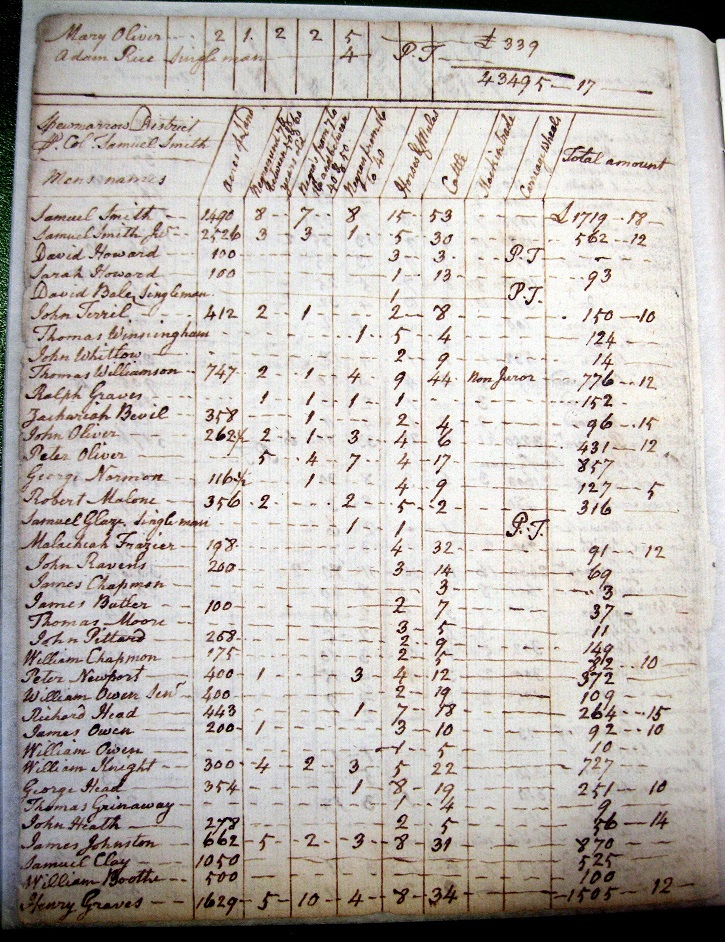 Mary Oliver 2 1 2 2 5 £ 339
Adam Rice Single man 4 P.T
43495 - 17
District
Col Samuel Smith
Mens names
Acres of Land
Horses & Mules
Cattle
Carriage wheels
Total amount
Samuel Smith 1490 8 7 8 15 53 £1719 - 18
Samuel Smith Jr 2526 3 3 1 5 30 562 - 12
David Howard 100 3 3 P.T -
Sarah Howard 100 1 13 93
David Bale, Singleman 1 P.T.
John Terrel 412 2 1 2 8 150 - 10
Thomas Winningham 1 5 4 124
John Whitlow 2 9 14
Thomas Williamson 747 2 1 4 9 44 Non Juror 776 - 12
Ralph Graves 1 1 1 1 152
Zachariah Bevil 358 1 2 4 96 - 15
John Oliver 262½ 2 1 3 4 6 431 - 12
Peter Oliver 5 4 7 4 17 857
George Normon 116½ 1 4 9 127 - 5
Robert Malone 356 2 2 5 2 316
Samuel Glaze, Single man 1 1 P.T.
Malachiah Frazier 198 4 32 91 - 12
John Ravens 200 3 14 69
James Chapmon 3 3
James Butler 100 2 7 37
Thomas Moore 3 5 11
John Pittard 268 2 9 149
William Chapmon 175 2 5 82 - 10
Peter Newport 400 1 3 4 12 372
William Owen Senr 400 2 19 109
Richard Head 443 1 7 18 264 - 15
James Owen 200 1 3 10 92 - 10
William Owen 1 5 10
William Knight 300 4 2 3 5 22 727
George Head 354 1 8 19 251 - 10
Thomas Grinaway 1 4 9
John Heath 278 2 5 56 - 14
James Johnston 662 5 2 3 8 31 870
Samuel Clay 1050 525
William Boothe 500 100
Henry Graves 1629 5 10 4 8 34 1505 - 12